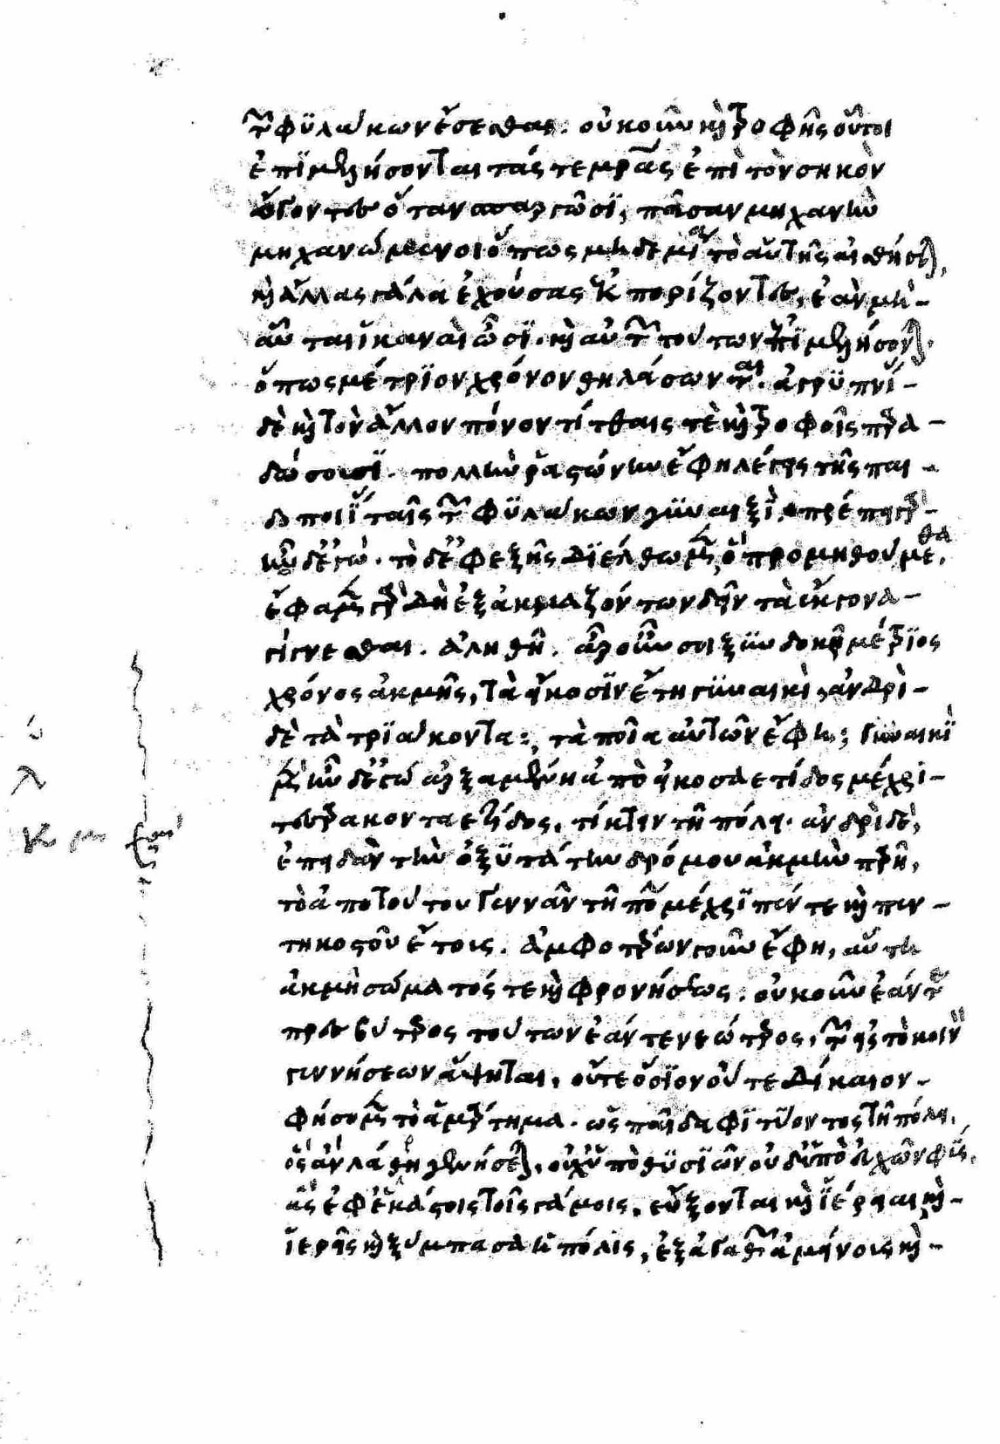 τῶν φϋλάκων ἔσεσθαι. οὐκοῦν καὶ τροφῆς οὗτοι
ἐπϊμελήσονται τάς τε μητέρας ἐπὶ τὸν σηκὸν
ἄγοντες ὅταν σπαργῶσϊ, πᾶσαν μηχανὴν
μηχανώμενοι ὅπως μηδεμία τὸ αὑτῆς αἰσθήσεται,
καὶ ἄλλας γάλα ἐχούσας ἐκπορίζοντες, ἐὰν μὴ
αὗται ἱκαναὶ ὦσϊ. καὶ αὐτῶν τούτων ἐπϊμελήσονται.
ὅπως μέτρϊον χρόνον θηλάσωνται. ἀγρϋπνίας
δὲ καὶ τὸν ἄλλον πόνον τίτθαις τὲ καὶ τροφοῖς παρα
δώσουσϊ. πολλὴν ῥαστώνην ἔφη λέγεις τῆς παι
δοποιΐας ταῖς τῶν φϋλάκων γϋναιξΐ. πρέπει γὰρ
ἦν δ' ἐγώ. τὸ δ' ἐφεξῆς δϊέλθωμεν, ὃ προμηθούμεθα.
ἔφαμεν γὰρ δὴ ἐξ ἀκμαζόντων δεῖν τὰ ἔκγονα
γίγνεσθαι. ἀληθῆ. ἆρ' οὖν σοι ξϋνδοκεῖ μέτρϊος
χρόνος ἀκμῆς, τὰ εἴκοσϊν ἔτη γϋναικὶ, ἀνδρὶ
δὲ τὰ τρϊάκοντα:, τὰ ποῖα αὐτῶν ἔφη; γυναικϊ
μὲν ἦν δ' ἐγώ ἀρξαμένη ἀπὸ εἰκοσαέτιδος μέχρι
τετταρακονταέτιδος, τίκτειν τῇ πόλει. ἀνδρὶ δὲ,
ἐπειδὰν τὴν ὀξϋτάτην δρόμου ἀκμὴν παρῇ,
τὸ ἀπὸ τούτου γεννᾶν τῇ πόλει μέχρϊ πέντε καὶ πεν
τηκοντούτοις. ἀμφοτέρων γοῦν ἔφη, αὕτη
ἀκμὴ σώματός τε καὶ φρονήσεως. οὐκοῦν ἐάν τε
πρεσβύτερος τούτων ἐάν τε νεώτερος, τῶν εἰς τὸ κοινὸν
γεννήσεων ἅψηται, οὔτε ὅσϊον οὔτε δίκαιον
φήσομεν τὸ ἁμάρτημα. ὡς παῖδα φϊτύοντος τῇ πόλει.
ὃς ἂν λάθῃ γεννήσεται, οὐχ' ὑπὸ θϋσϊῶν οὐδ' ὑπὸ εὐχῶν φὺς,
ἃς ἐφ' ἑκάστοις τοῖς γάμοις, εὔξονται καὶ ἱέρειαι καὶ
ἱερῆς καὶ ξύμπασα ἡ πόλις, ἐξ ἀγαθῶν ἀμείνους καὶ